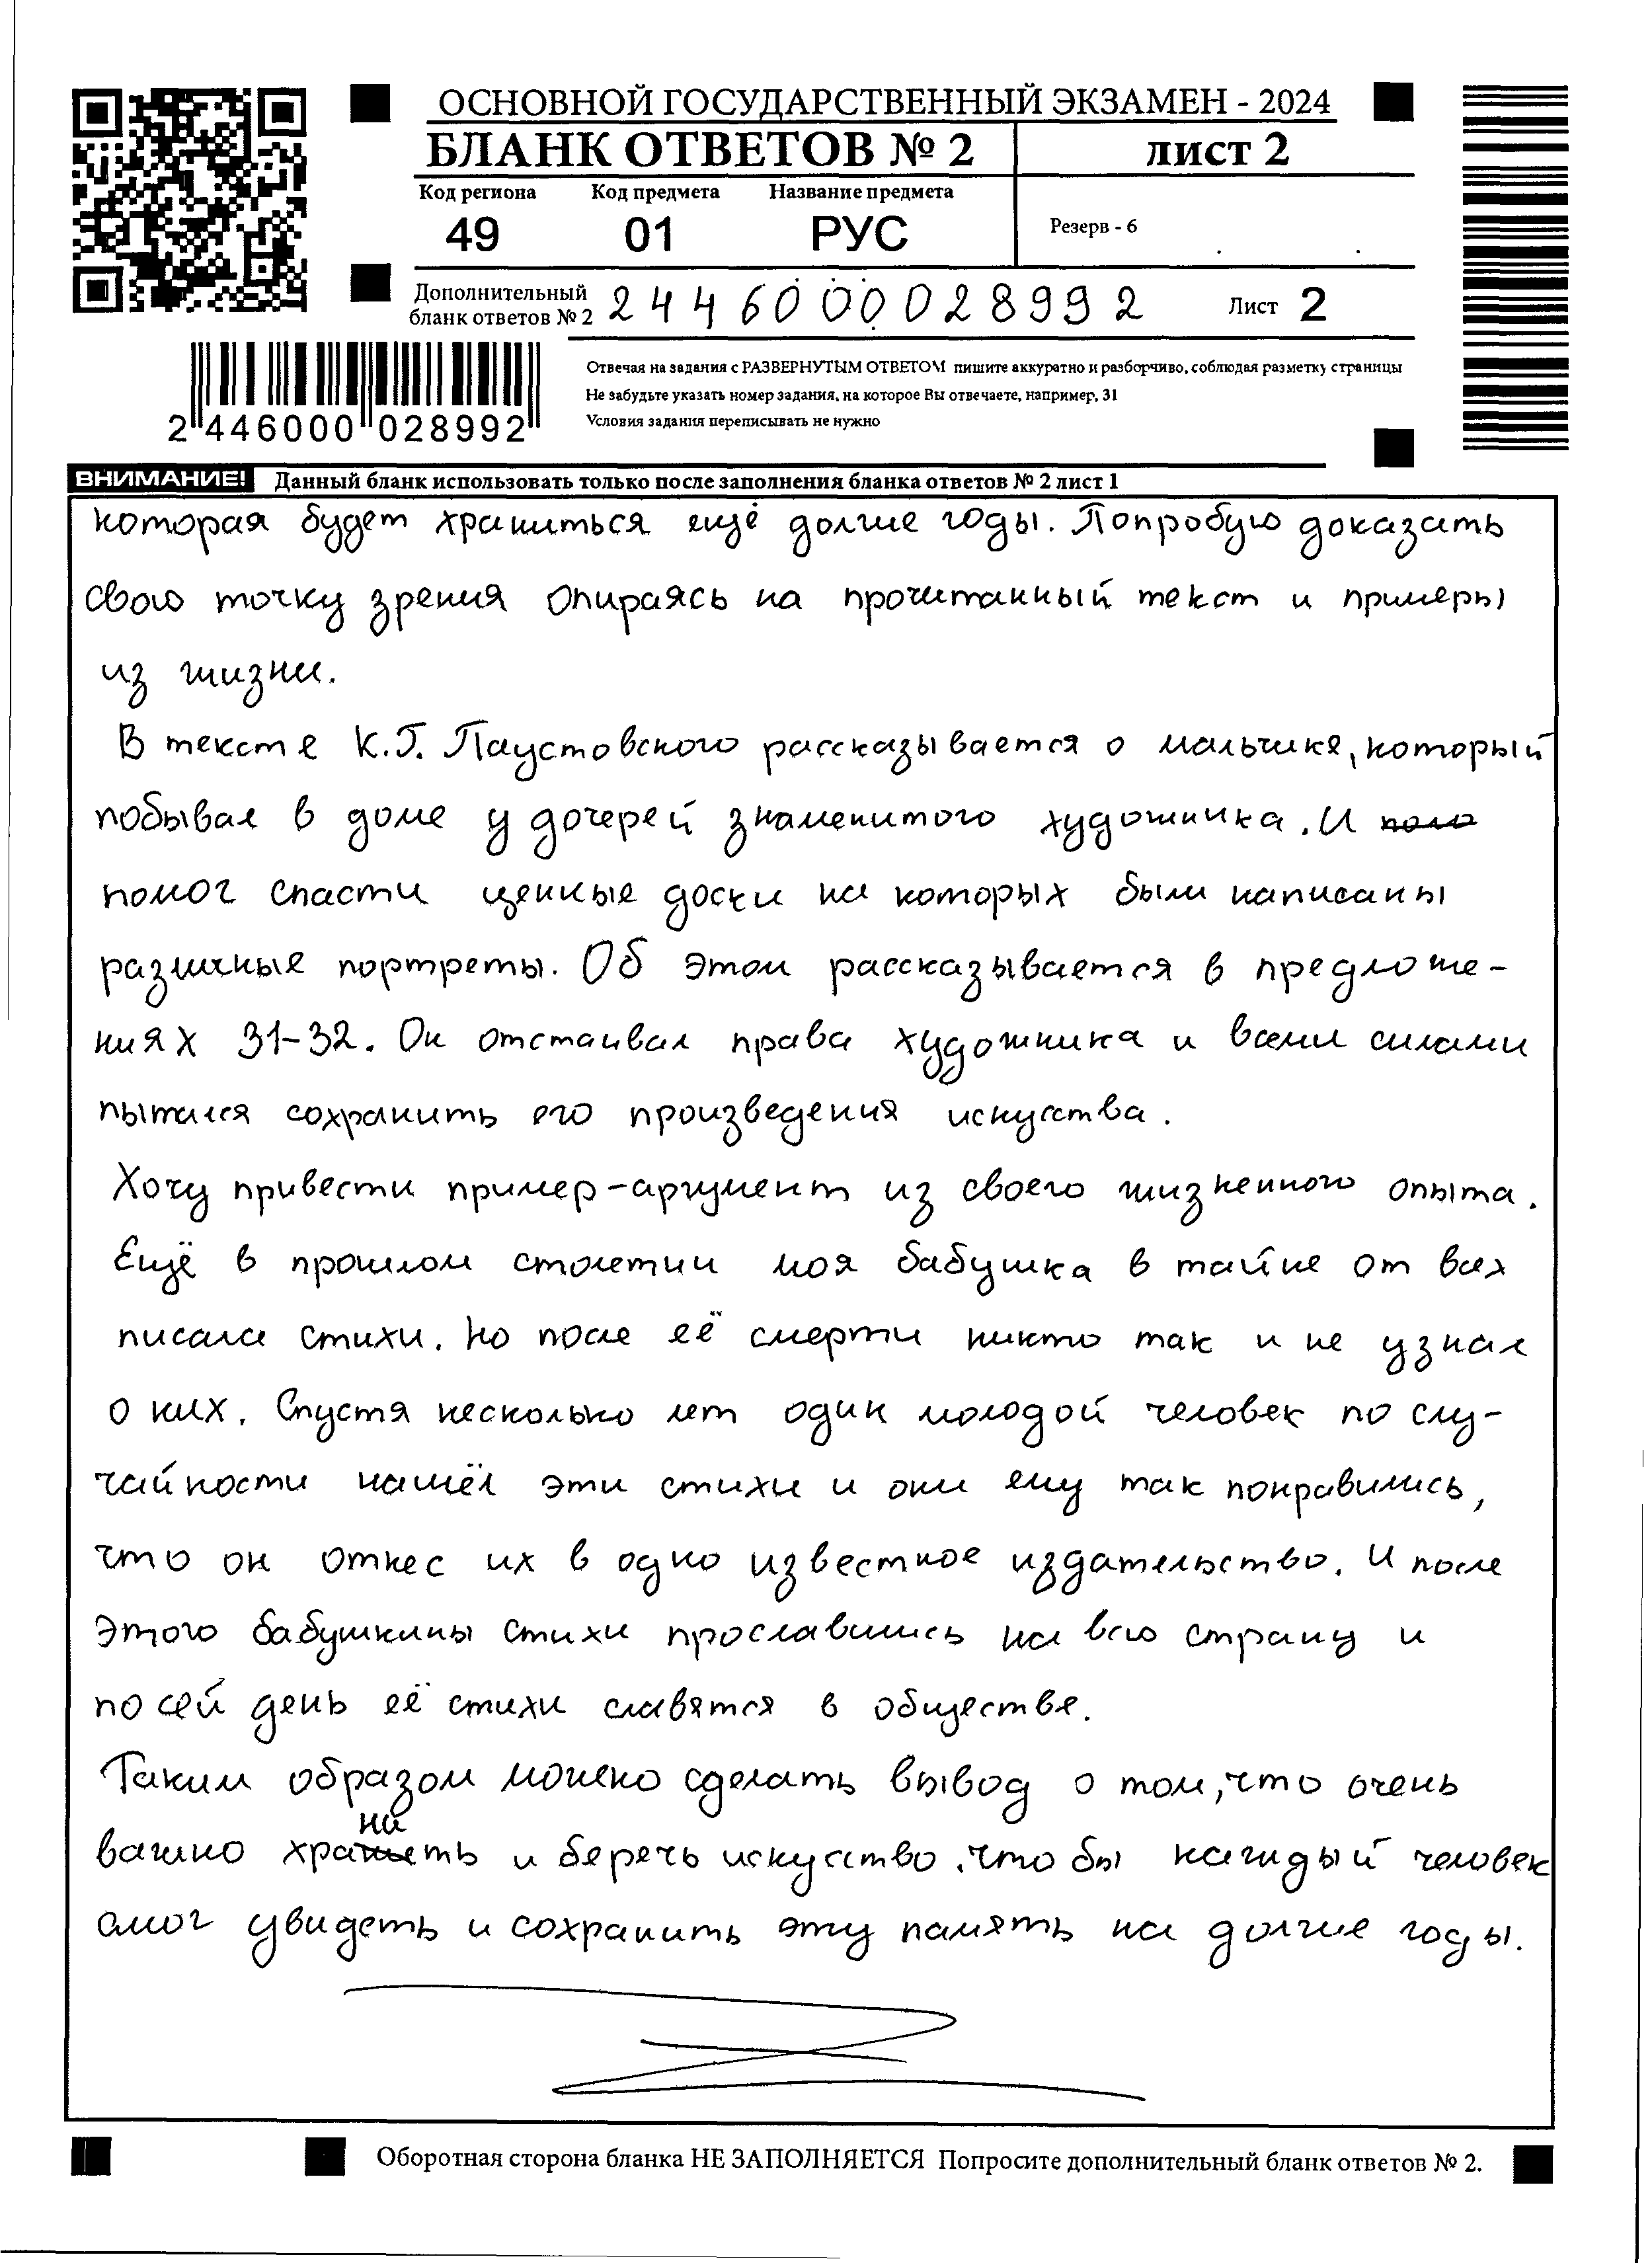 ОСНОВНОЙ ГОСУДАРСТВЕННЫЙ ЭКЗАМЕН - 2024
БЛАНК ОТВЕТОВ № 2
ЛИСТ 2
Код региона Код предмета Название предмета
49 01 РУС
Резерв - 6
Дополнительный
бланк ответов № 2
2446000028992
Лист 2
Отвечая на задания с РАЗВЕРНУТЫМ ОТВЕТОМ пишите аккуратно и разборчиво, соблюдая разметку страницы
Не забудьте указать номер задания, на которое Вы отвечаете, например, 31
Условия задания переписывать не нужно
2 446000 028992
ВНИМАНИЕ! Данный бланк использовать только после заполнения бланка ответов № 2 лист 1
которая будет храниться ещё долгие годы. Попробую доказать
свою точку зрения опираясь на прочитанный текст и примеры
из жизни.
В тексте К.Г. Паустовского рассказывается о мальчике, который
побывал в доме у дочерей знаменитого художника. И поло
помог спасти ценные доски на которых были написаны
различные портреты. Об этом рассказывается в предложе-
ниях 31-32. Он отстаивал права художника и всеми силами
пытался сохранить его произведения искусства.
Хочу привести пример-аргумент из своего жизненного опыта.
Ещё в прошлом столетии моя бабушка в тайне от всех
писала стихи. Но после её смерти никто так и не узнал
о них. Спустя несколько лет один молодой человек по слу-
чайности нашёл эти стихи и они ему так понравились,
что он отнес их в одно известное издательство. И после
этого бабушкины стихи прославились на всю страну и
по сей день её стихи славятся в обществе.
Таким образом можно сделать вывод о том, что очень
важно хранить и беречь искусство. что бы каждый человек
смог увидеть и сохранить эту память на долгие годы.
Оборотная сторона бланка НЕ ЗАПОЛНЯЕТСЯ Попросите дополнительный бланк ответов № 2.